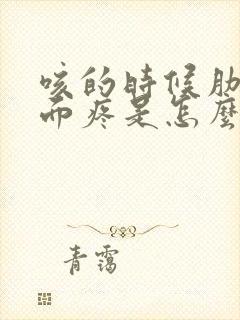 咳的時候肋
而疼是怎麼
青靄